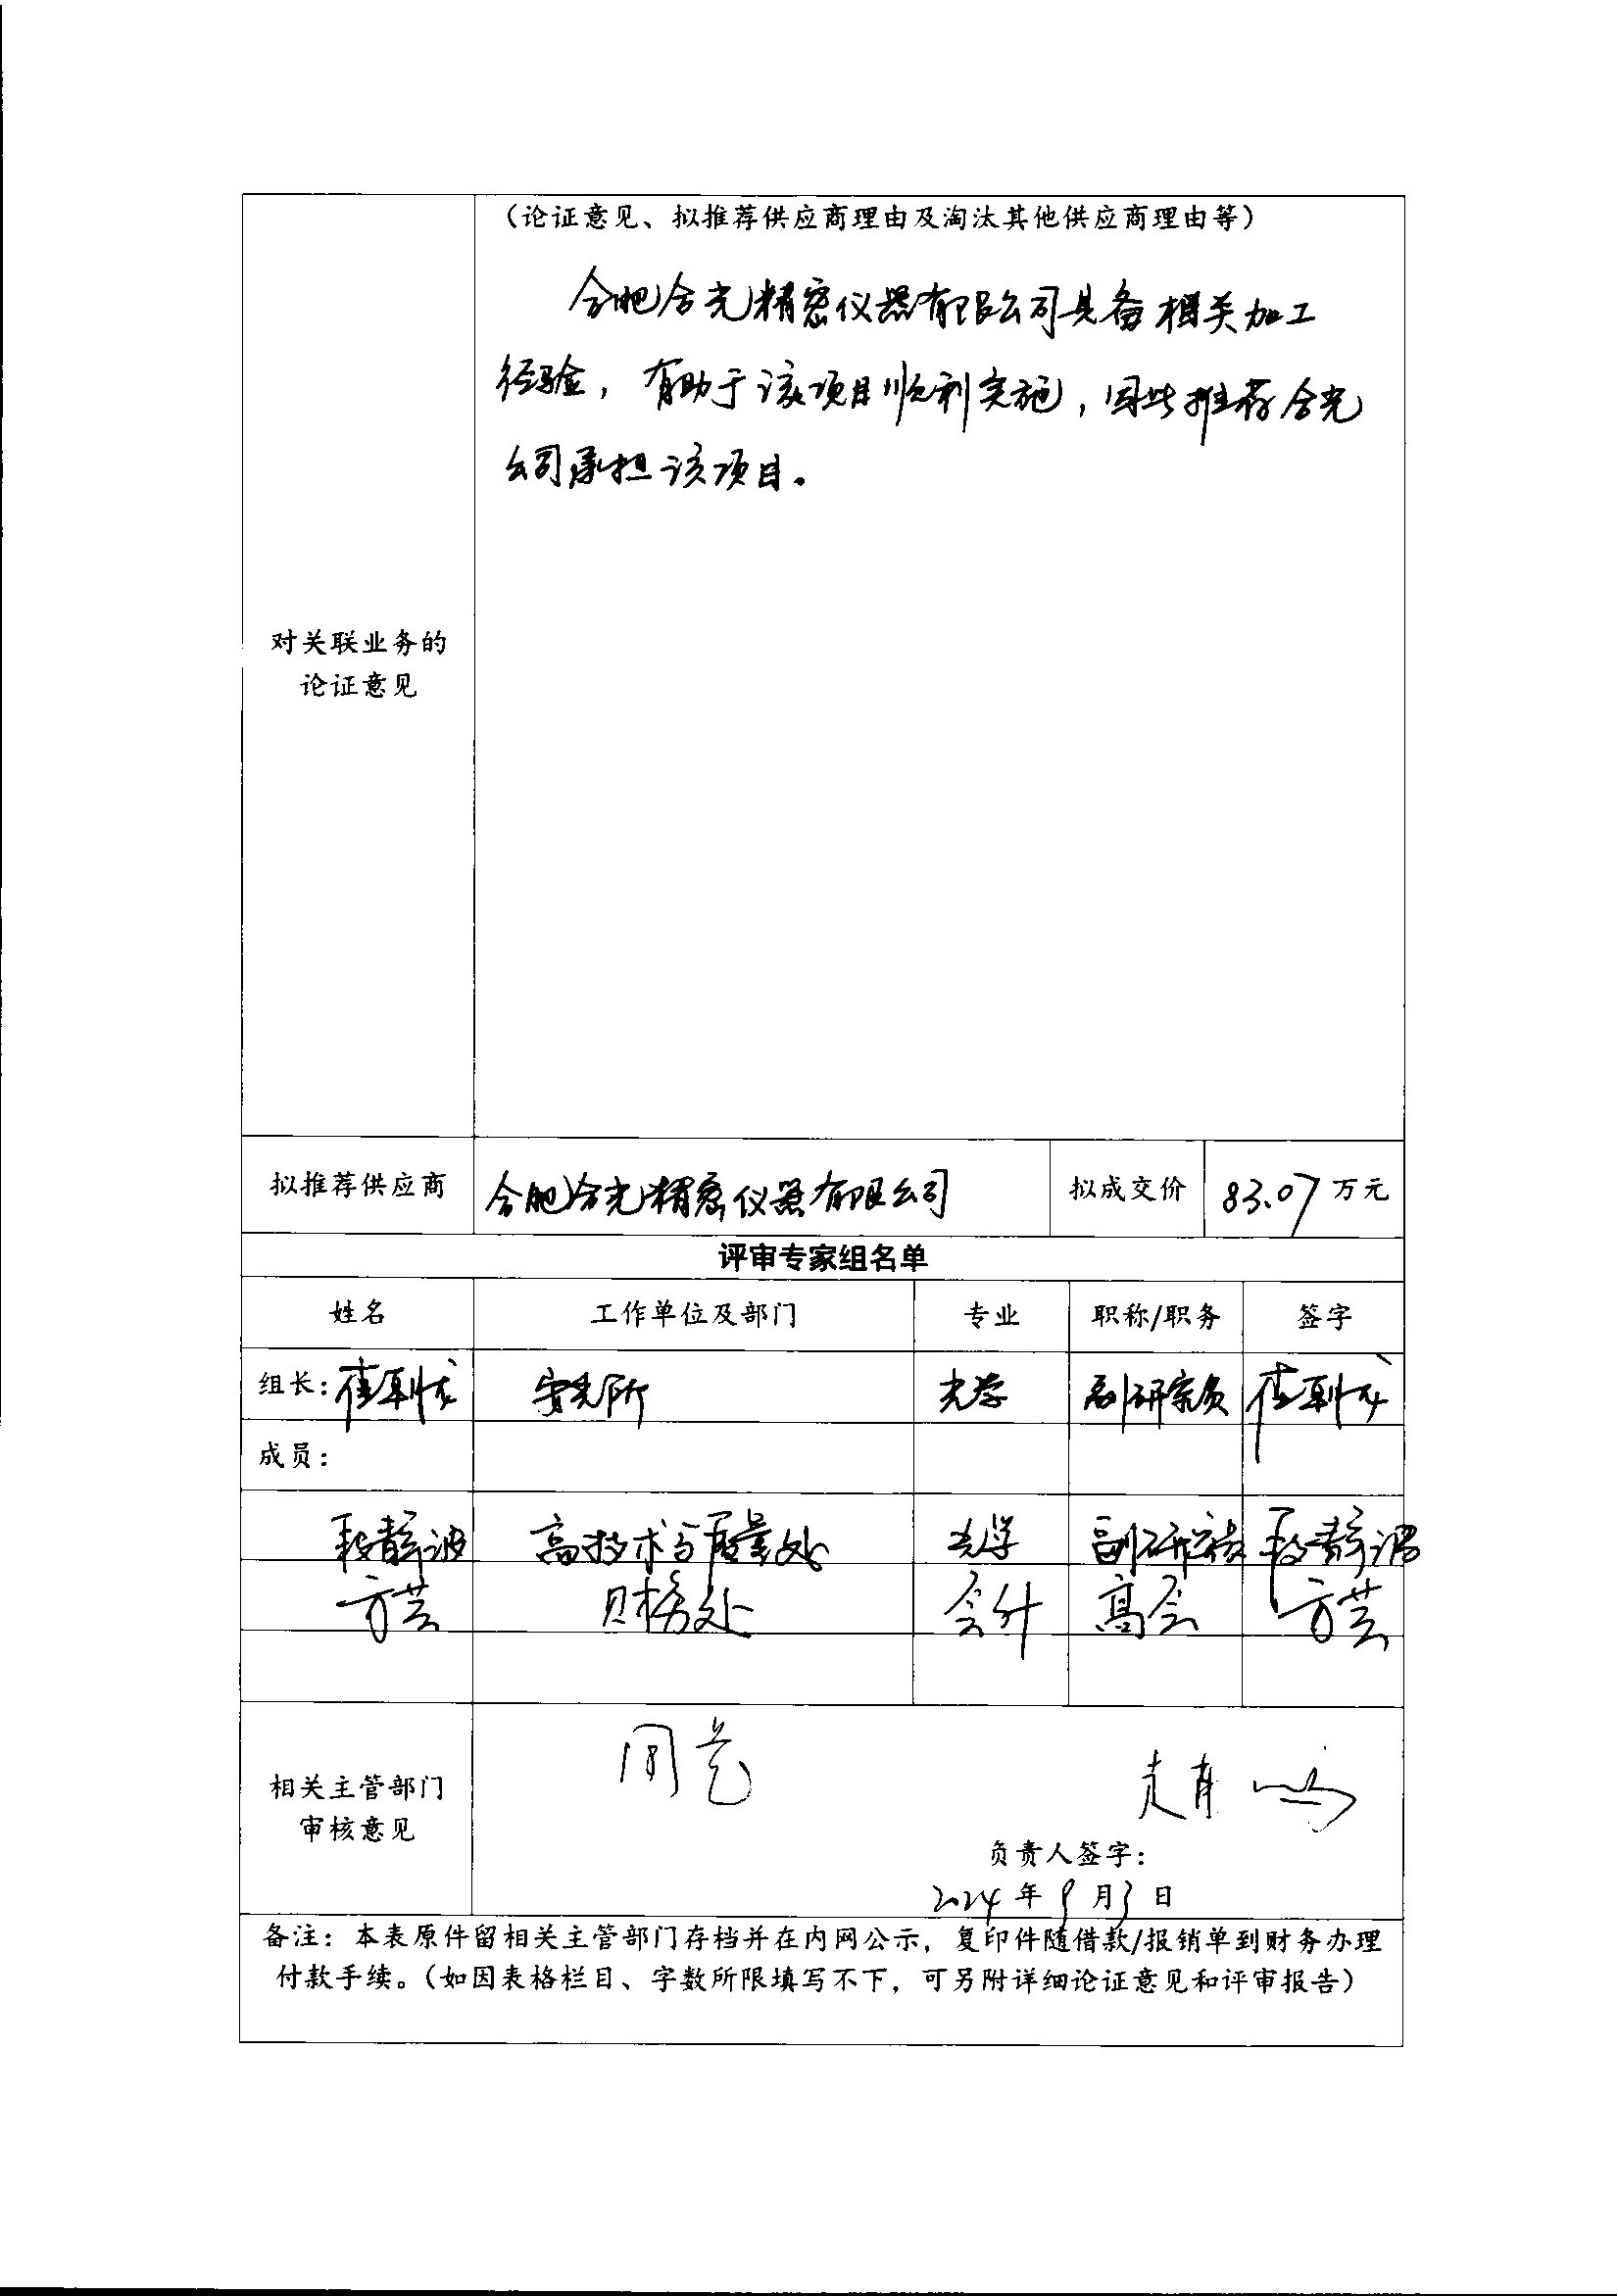 （论证意见、拟推荐供应商理由及淘汰其他供应商理由等）
合肥合光精密仪器有限公司具备相关加工
经验，有助于该项目顺利实施，因此推荐合光
公司承担该项目。
对关联业务的
论证意见
拟推荐供应商 合肥合光精密仪器有限公司 拟成交价 83.07 万元
评审专家组名单
姓名 工作单位及部门 专业 职称/职务 签字
组长： 安光所 光学 副研究员
成员：
段静波 高技术与质量处 光学 副研究员 段静波
方芸 财务处 会计 高会 方芸
同意
相关主管部门
审核意见
负责人签字：
2024 年 9 月 3 日
备注：本表原件留相关主管部门存档并在内网公示，复印件随借款/报销单到财务办理
付款手续。（如因表格栏目、字数所限填写不下，可另附详细论证意见和评审报告）